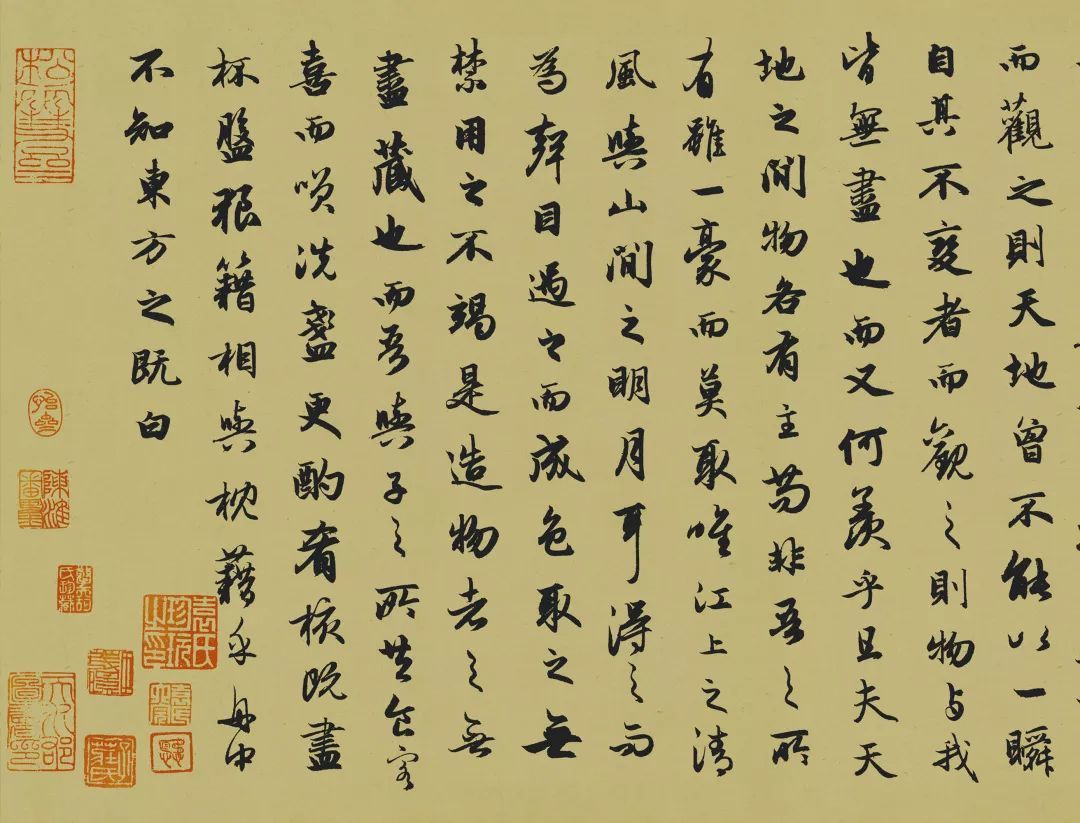 而觀之則天地曾不能以一瞬
自其不變者而觀之則物与我
皆無盡也而又何羨乎且夫天
地之間物各有主苟非吾之所
有雖一豪而莫取唯江上之清
風與山間之明月耳得之而
為聲目遇之而成色取之無
禁用之不竭是造物者之無
盡藏也而吾與子之所共食客
喜而笑洗盞更酌肴核既盡
杯盤狼籍相與枕藉乎舟中
不知東方之既白